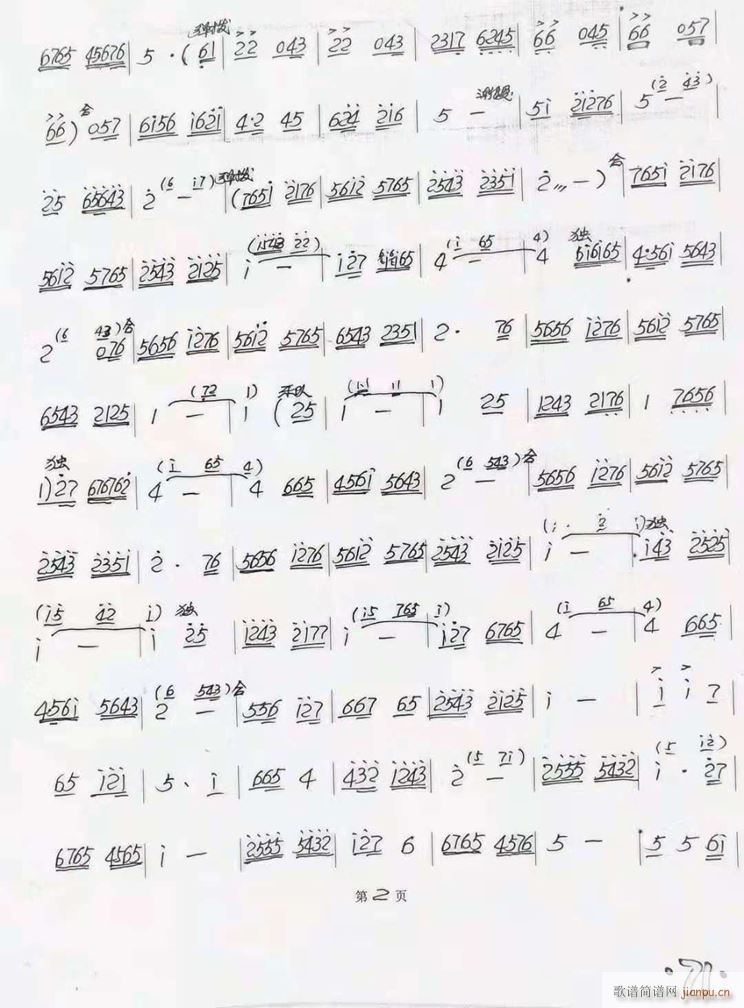 6765 45676 | 5 · ( 61 | 22 043 | 22 043 | 2317 6245 | 66 045 | 66 057 |
66 ) 合 057 | 6156 1621 | 4·2 45 | 624 216 | 5 — | 51 21276 | 5 (2 — 43) |
25 65643 | 2 (6 — 17) | (7651 2176 | 5612 5765 | 2543 2351 | 2 — ) 合 | 7651 2176 |
5612 5765 | 2543 2125 | 1 (1543 22) — | 127 65 | 4 (1 65 — | 4) 4 独 616165 | 4·561 5643 |
2 (6 43) 合 076 | 5656 1276 | 5612 5765 | 6543 2351 | 2 · 76 | 5656 1276 | 5612 5765 |
6543 2125 | 1 (72 — | 1) 1 (25 | 1 — | 1 25 | 1243 2176 | 1 7656 |
独 1) 27 676762 | 4 (1 65 — | 4) 4 665 | 4561 5643 | 2 (6 543) 合 — | 5656 1276 | 5612 5765 |
2543 2351 | 2 · 76 | 5656 1276 | 5612 5765 | 2543 2125 | 1 (1 · 2 — | 1) 独 143 2525 |
1 (15 42 — | 1) 1 独 25 | 1243 2177 | 1 (15 765 — | 1) 127 6765 | 4 (1 65 — | 4) 4 665 |
4561 5643 | 2 (6 543) 合 — | 556 127 | 667 65 | 2543 2125 | 1 — | 1 1 7 |
65 121 | 5 · 1 | 665 4 | 432 1243 | 2 (5 71) — | 2555 5432 | 1 (5 12) · 27 |
6765 4565 | 1 — | 2555 5432 | 127 6 | 6765 4576 | 5 — | 5 5 61 |
第 2 页
歌谱简谱网
jianpu.cn